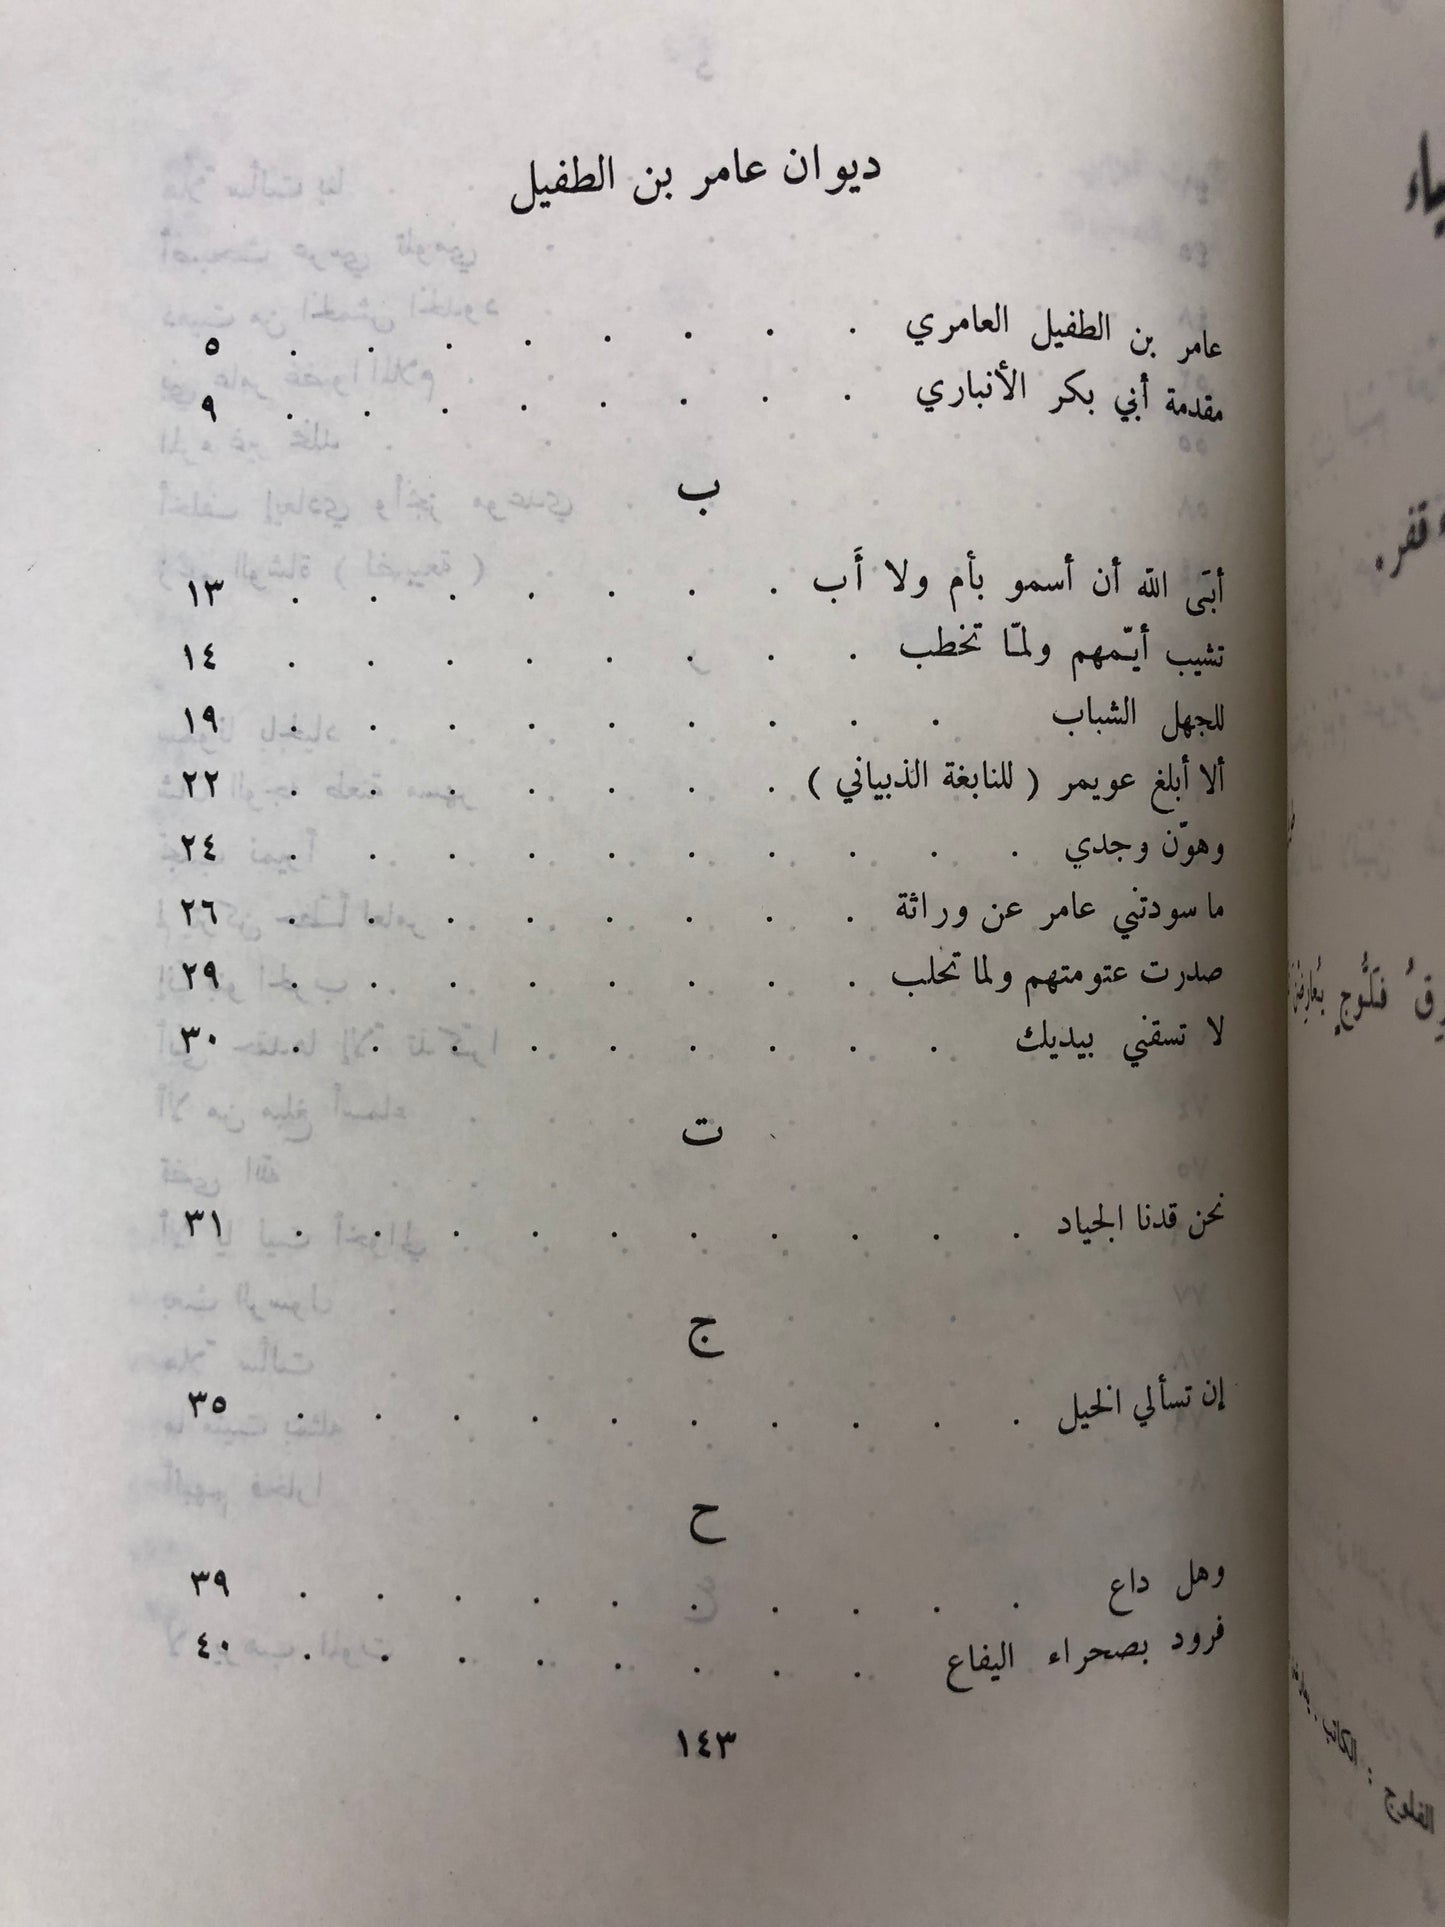 ديوان عامر بن الطفيل
عامر بن الطفيل العامري . . . . . . . . ٥
مقدمة أبي بكر الأنباري . . . . . . . . ٩
ب
أبَى اللّه أن أسمو بأم ولا أَب . . . . . . . ١٣
تشيب أيّمهم ولمّا تخطب . . . . . . . . ١٤
للجهل الشباب . . . . . . . . . ١٩
ألا أبلغ عويمر ( للنابغة الذبياني ) . . . . . . . ٢٢
وهوّن وجدي . . . . . . . . . . ٢٤
ما سودتني عامر عن وراثة . . . . . . . . ٢٦
صدرت عتومتهم ولما تحلب . . . . . . . . ٢٩
لا تسقني بيديك . . . . . . . . . ٣٠
ت
نحن قدنا الجياد . . . . . . . . . . ٣١
ج
إن تسألي الخيل . . . . . . . . . . ٣٥
ح
وهل داع . . . . . . . . . . ٣٩
فرود بصحراء اليفاع . . . . . . . . ٤٠
١٤٣